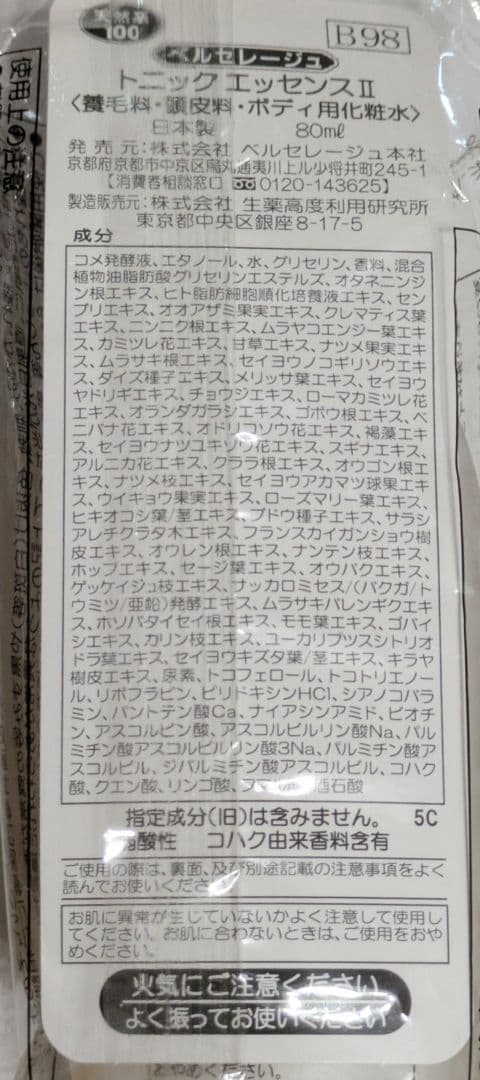 天然薬
100
B98
ベルセレージュ
トニック エッセンスⅡ
〈養毛料・頭皮料・ボディ用化粧水〉
日本製 80mℓ
発売元:株式会社 ベルセレージュ本社
京都府京都市中京区烏丸通夷川上ル少将井町245-1
【消費者相談窓口 0120-143625】
製造販売元:株式会社 生薬高度利用研究所
東京都中央区銀座8-17-5
成分
コメ発酵液、エタノール、水、グリセリン、香料、混合
植物油脂肪酸グリセリンエステルズ、オタネニンジ
ン根エキス、ヒト脂肪細胞順化培養液エキス、セン
ブリエキス、オオアザミ果実エキス、クレマティス葉
エキス、ニンニク根エキス、ムラヤコエンジー葉エキ
ス、カミツレ花エキス、甘草エキス、ナツメ果実エキ
ス、ムラサキ根エキス、セイヨウノコギリソウエキ
ス、ダイズ種子エキス、メリッサ葉エキス、セイヨウ
ヤドリギエキス、チョウジエキス、ローマカミツレ花
エキス、オランダガラシエキス、ゴボウ根エキス、ベ
ニバナ花エキス、オドリコソウ花エキス、褐藻エキ
ス、セイヨウナツユキソウ花エキス、スギナエキス、
アルニカ花エキス、クララ根エキス、オウゴン根エ
キス、ナツメ枝エキス、セイヨウアカマツ球果エキ
ス、ウイキョウ果実エキス、ローズマリー葉エキス、
ヒキオコシ葉/茎エキス、ブドウ種子エキス、サラシ
アレチクラタ木エキス、フランスカイガンショウ樹
皮エキス、オウレン根エキス、ナンテン枝エキス、
ホップエキス、セージ葉エキス、オウバクエキス、
ゲッケイジュ枝エキス、サッカロミセス/(バクガ/ト
ウミツ/亜鉛)発酵エキス、ムラサキバレンギクエキ
ス、ホソバタイセイ根エキス、モモ葉エキス、ゴバイ
シエキス、カリン枝エキス、ユーカリプツスシトリオ
ドラ葉エキス、セイヨウキズタ葉/茎エキス、キラヤ
樹皮エキス、尿素、トコフェロール、トコトリエノー
ル、リボフラビン、ピリドキシンHCl、シアノコバラ
ミン、パントテン酸Ca、ナイアシンアミド、ビオチ
ン、アスコルビン酸、アスコルビルリン酸Na、パル
ミチン酸アスコルビルリン酸3Na、パルミチン酸ア
スコルビル、ジパルミチン酸アスコルビル、コハク
酸、クエン酸、リンゴ酸、 酒石酸
指定成分(旧)は含みません。 5C
弱酸性 コハク由来香料含有
ご使用の際は、裏面、及び別途記載の注意事項をよく
読んでお使いください。
お肌に異常が生じていないかよく注意して使用し
てください。お肌に合わないときは、ご使用をおや
めください。
火気にご注意ください
よく振ってお使いください
使用上の注意